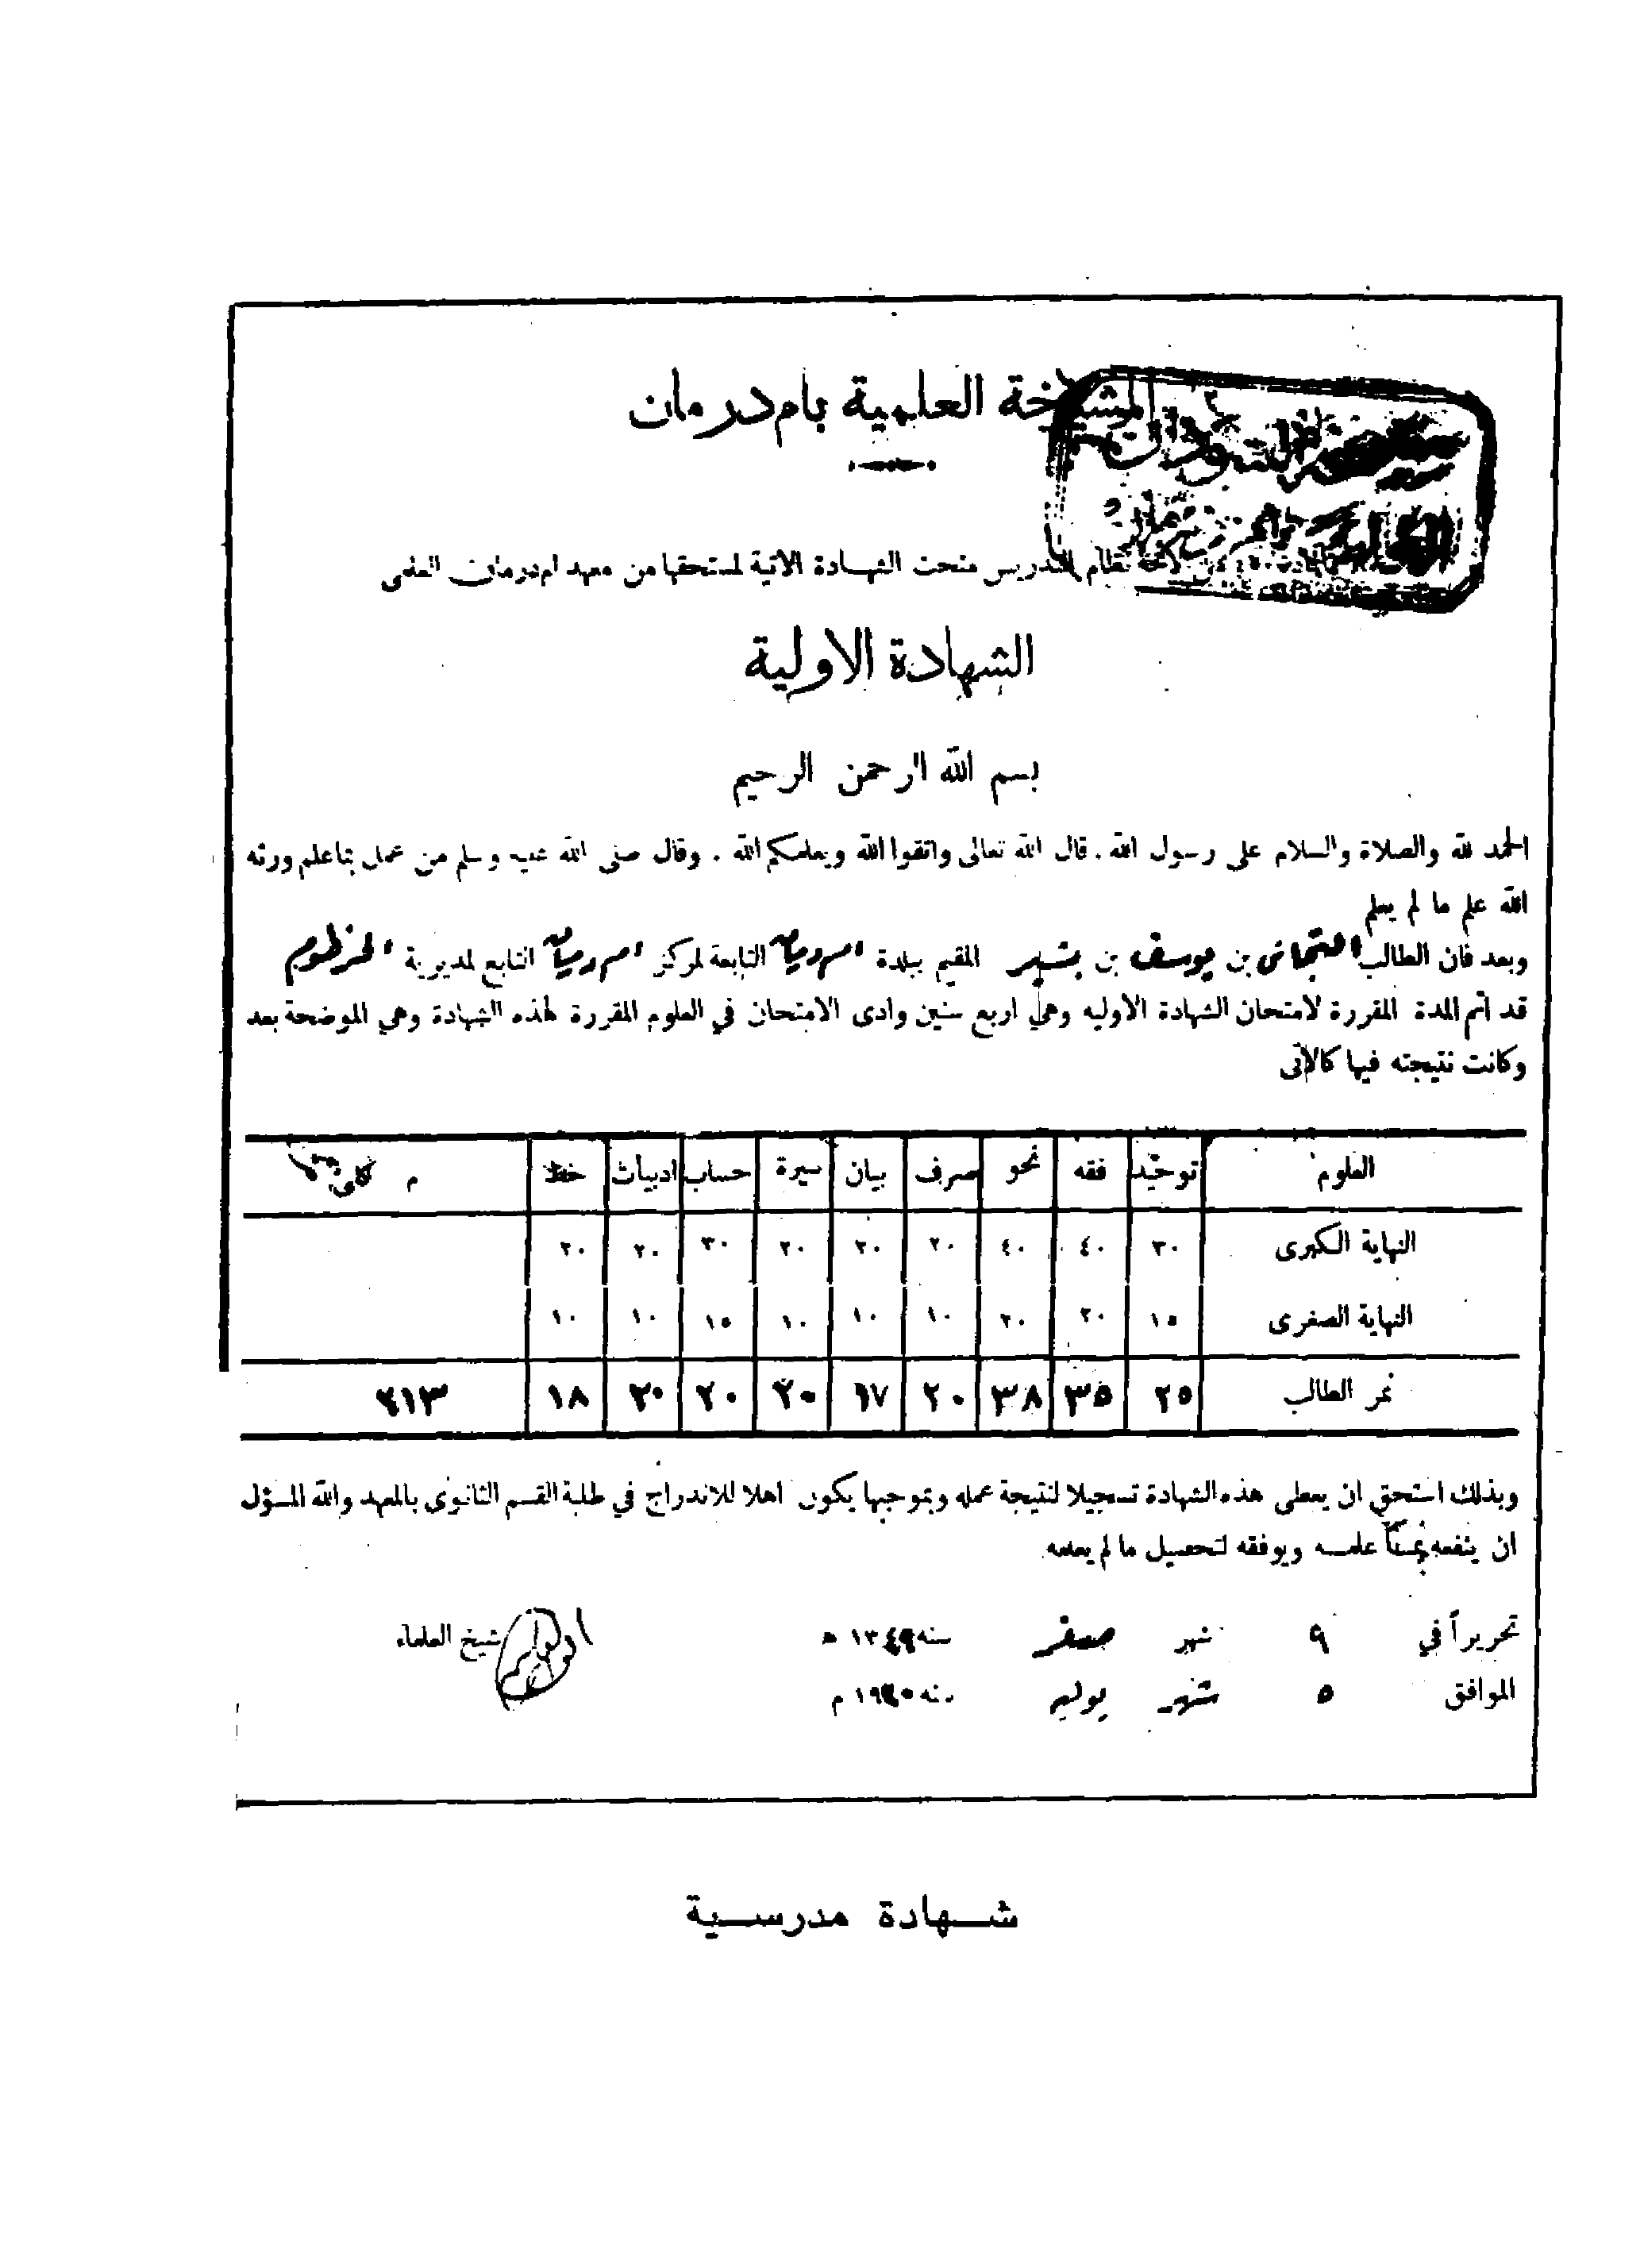 المشيخة العلمية بام درمان
لائحة نظام التدريس منحت الشهادة الآتية لمستحقها من معهد ام درمان العلمي
الشهادة الاولية
بسم الله الرحمن الرحيم
الحمد لله والصلاة والسلام على رسول الله . قال الله تعالى واتقوا الله ويعلمكم الله . وقال صلى الله عليه وسلم من عمل بما علم ورثه
الله علم ما لم يعلم
وبعد فان الطالب التجانى بن يوسف بن بشير المقيم ببلدة امدرمان التابعة لمركز امدرمان التابع لمديرية الخرطوم
قد اتم المدة المقررة لامتحان الشهادة الاوليه وهي اربع سنين وادى الامتحان في العلوم المقررة لهذه الشهادة وهي الموضحة بعد
وكانت نتيجته فيها كالآتى
العلوم توحيد فقه نحو صرف بيان سيرة حساب ادبيات خط
النهاية الكبرى ٣٠ ٤٠ ٤٠ ٢٠ ٢٠ ٢٠ ٣٠ ٢٠ ٢٠
النهاية الصغرى ١٥ ٢٠ ٢٠ ١٠ ١٠ ١٠ ١٥ ١٠ ١٠
نمر الطالب ٢٥ ٣٥ ٣٨ ٢٠ ١٧ ٢٠ ٢٠ ٢٠ ١٨ ٢١٣
وبذلك استحق ان يعطى هذه الشهادة تسجيلا لنتيجة عمله وبموجبها يكون اهلا للاندراج في طلبة القسم الثانوى بالمعهد والله المسؤل
ان ينفعه بما علمه ويوفقه لتحصيل ما لم يعلمه
تحريراً في ٩ شهر صفر سنه ١٣٤٩ ه شيخ العلماء
الموافق ٥ شهر يوليه سنه ١٩٣٠ م
شهادة مدرسية